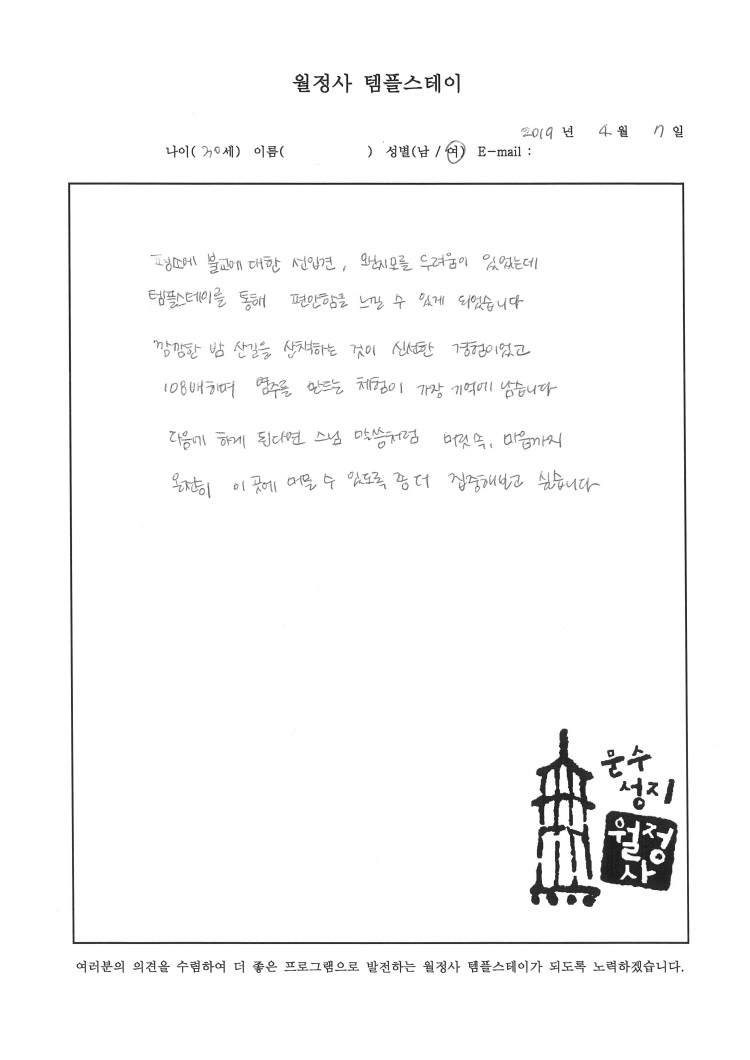 월정사 템플스테이
2019 년 4 월 7 일
나이( 30세) 이름( ) 성별(남 / 여) E-mail :
평소에 불교에 대한 선입견, 왠지모를 두려움이 있었는데
템플스테이를 통해 편안함을 느낄 수 있게 되었습니다
깜깜한 밤 산길을 산책하는 것이 신선한 경험이었고
108배하며 염주를 만드는 체험이 가장 기억에 남습니다
다음에 하게 된다면 스님 말씀처럼 머릿속, 마음까지
온전히 이 곳에 머물 수 있도록 좀 더 집중해보고 싶습니다
문수
성지
월정
사
여러분의 의견을 수렴하여 더 좋은 프로그램으로 발전하는 월정사 템플스테이가 되도록 노력하겠습니다.